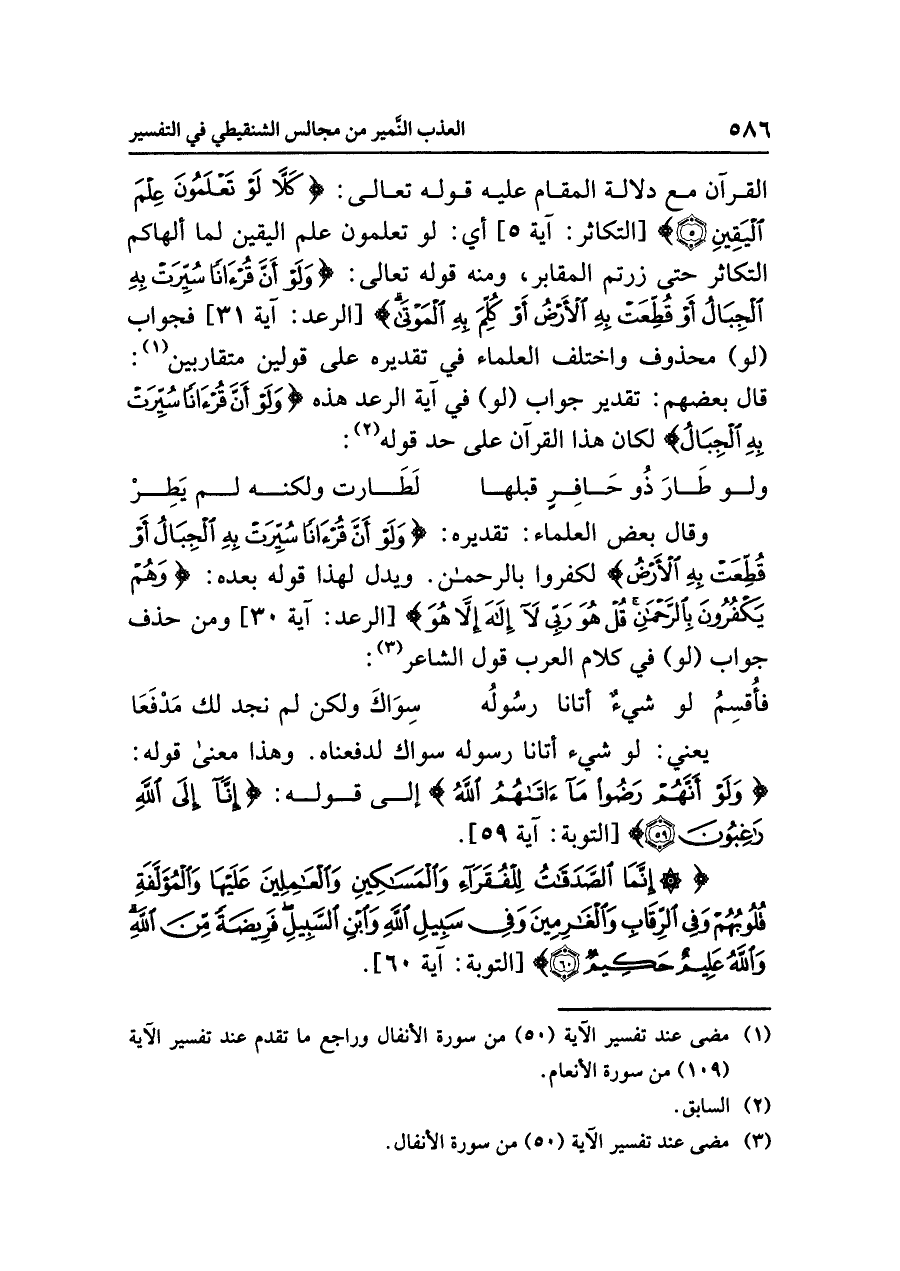 ٥٨٦ العذب النَّمير من مجالس الشنقيطي في التفسير
القرآن مع دلالة المقام عليه قوله تعالى: ﴿ كَلَّا لَوْ تَعْلَمُونَ عِلْمَ
ٱلْيَقِينِ ٥﴾ [التكاثر: آية ٥] أي: لو تعلمون علم اليقين لما ألهاكم
التكاثر حتى زرتم المقابر، ومنه قوله تعالى: ﴿وَلَوْ أَنَّ قُرْءَانًا سُيِّرَتْ بِهِ
ٱلْجِبَالُ أَوْ قُطِّعَتْ بِهِ ٱلْأَرْضُ أَوْ كُلِّمَ بِهِ ٱلْمَوْتَىٰۗ﴾ [الرعد: آية ٣١] فجواب
(لو) محذوف واختلف العلماء في تقديره على قولين متقاربين(١):
قال بعضهم: تقدير جواب (لو) في آية الرعد هذه ﴿وَلَوْ أَنَّ قُرْءَانًا سُيِّرَتْ
بِهِ ٱلْجِبَالُ﴾ لكان هذا القرآن على حد قوله(٢):
ولو طَارَ ذُو حَافِرٍ قبلها لَطَارت ولكنه لم يَطِرْ
وقال بعض العلماء: تقديره: ﴿وَلَوْ أَنَّ قُرْءَانًا سُيِّرَتْ بِهِ ٱلْجِبَالُ أَوْ
قُطِّعَتْ بِهِ ٱلْأَرْضُ﴾ لكفروا بالرحمـٰن. ويدل لهذا قوله بعده: ﴿وَهُمْ
يَكْفُرُونَ بِٱلرَّحْمَٰنِۚ قُلْ هُوَ رَبِّي لَآ إِلَٰهَ إِلَّا هُوَ﴾ [الرعد: آية ٣٠] ومن حذف
جواب (لو) في كلام العرب قول الشاعر(٣):
فأُقسِمُ لو شيءٌ أتانا رسُولُه سِوَاكَ ولكن لم نجد لك مَدْفَعَا
يعني: لو شيء أتانا رسوله سواك لدفعناه. وهذا معنىٰ قوله:
﴿ وَلَوْ أَنَّهُمْ رَضُوا۟ مَآ ءَاتَىٰهُمُ ٱللَّهُ ﴾ إلى قوله: ﴿إِنَّآ إِلَى ٱللَّهِ
رَٰغِبُونَ ٥٩﴾ [التوبة: آية ٥٩].
﴿ ۞ إِنَّمَا ٱلصَّدَقَٰتُ لِلْفُقَرَآءِ وَٱلْمَسَٰكِينِ وَٱلْعَٰمِلِينَ عَلَيْهَا وَٱلْمُؤَلَّفَةِ
قُلُوبُهُمْ وَفِي ٱلرِّقَابِ وَٱلْغَٰرِمِينَ وَفِي سَبِيلِ ٱللَّهِ وَٱبْنِ ٱلسَّبِيلِۖ فَرِيضَةً مِّنَ ٱللَّهِۗ
وَٱللَّهُ عَلِيمٌ حَكِيمٌ ٦٠﴾ [التوبة: آية ٦٠].
(١) مضى عند تفسير الآية (٥٠) من سورة الأنفال وراجع ما تقدم عند تفسير الآية
(١٠٩) من سورة الأنعام.
(٢) السابق.
(٣) مضى عند تفسير الآية (٥٠) من سورة الأنفال.